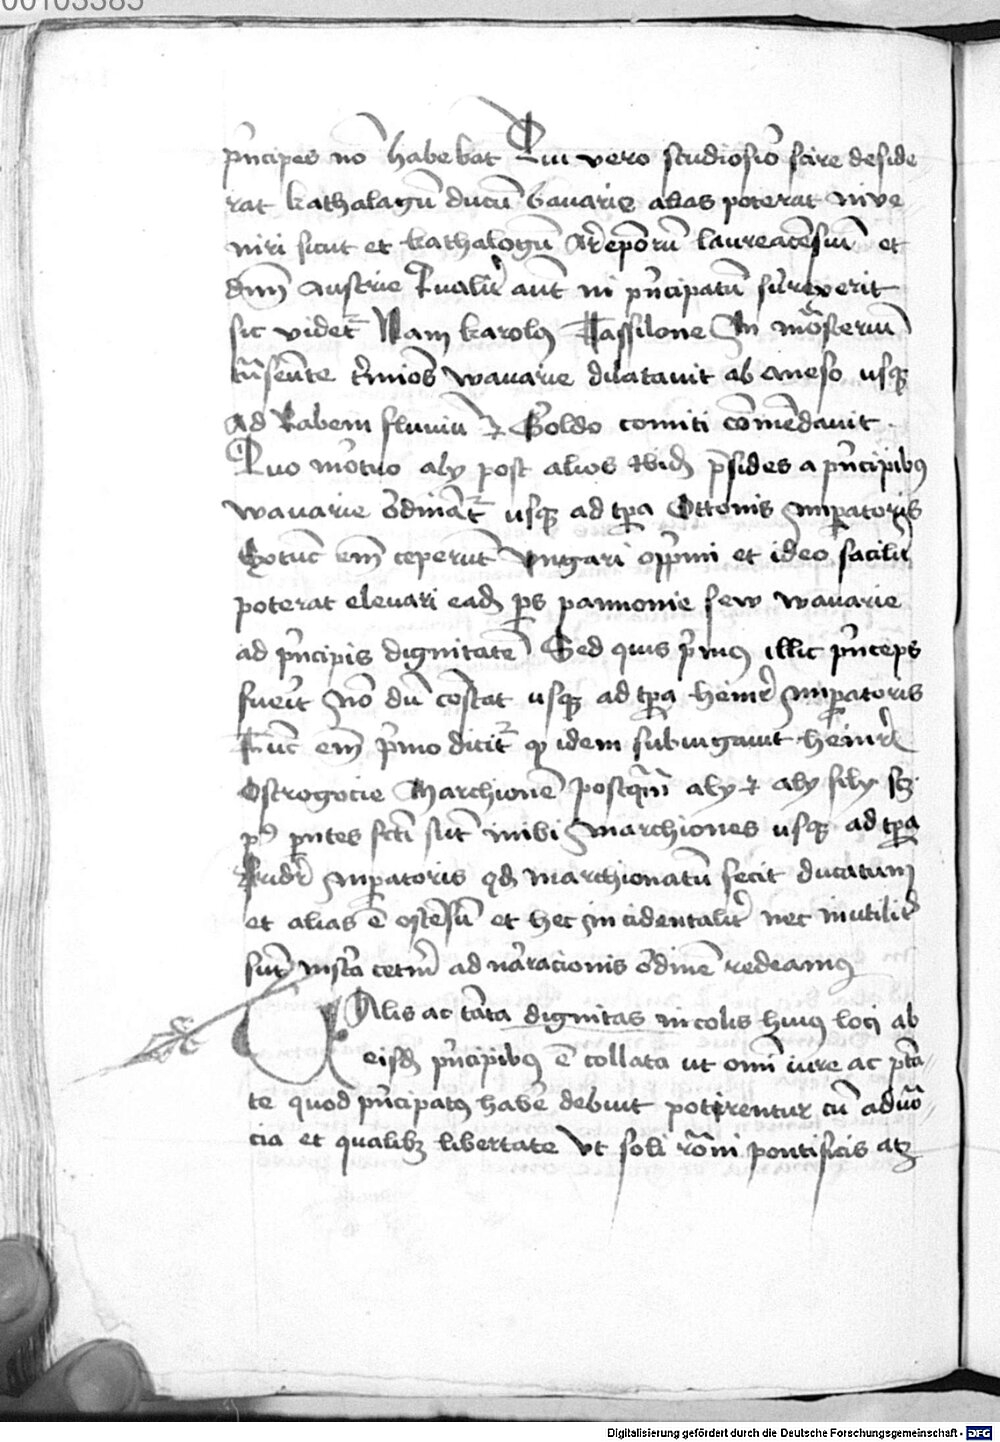 00103385
pn̄cipes nō habebat Qui vero studiosiō scire deside
rat kathalagū ducū bauarie alias poterat inve
niri sicut et kathalogū Ar̄epōrū laureacēsiuȝ et
dn̄m̄ austrie Qualir̄ aūt in pn̄cipatū surexerit
sic videt᷑ Nam karolꝯ Tassilone In mōsteriū
trū̄seūte t᷑mīos wauarie dilatauit ab aneso usqȝ
Ad Rabem fluuiū ⁊ Goldo comiti cōmēdauit
Quo mōrtuo aly post alios ibideȝ p̄sides a pn̄cipibꝯ
wauarie ōrdināt᷑ usqȝ ad tꝑa Ottonis Imꝑatoris
Extūc em̄ ceperūt vngari opp̄mi et ideo facilir̄
poterat eleuari eadeȝ ꝑs pannonie sew wauarie
ad pn̄cipis dignitatē Sed quis p̄mꝯ illic pn̄ceps
fuerīt Nō dū cōstat usqȝ ad tꝑa heinr̄ Imꝑatoris
Tūc em̄ p̄mo dicit᷑ ꝙ idem subiugauit heinr̄
Ostrogocie Marchionē postqm̄ aly ⁊ aly fily sȝ
pꝰ pn̄tes fcti sūt inibi Marchiones usqȝ ad tꝑa
fridr̄ Imꝑatoris qd marchionatū fecit ducatum
et alias ē ostēsū et hec Incidentalir̄ nec inutilir̄
sūt᷑ cetm̄ ad nāracionis ōrdinē redeamꝯ
Talis ac tāta dignitas incolis huiꝯ loci ab
eisdȝ pn̄cipibꝯ ē collata ut omī iure ac ptā
te quod pn̄cipatꝯ habē debuit potirentur cū aduō
cia et qualibȝ libertate Vt soli rōm̄i pontificis atȝ
Digitalisierung gefördert durch die Deutsche Forschungsgemeinschaft - DFG